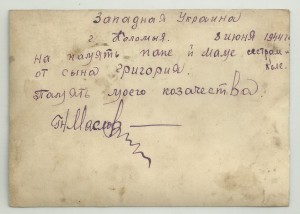 Западная Украина
г. Коломыя. 8 июня 1941 г.
на память папе и маме сестрам
Коле.
от сына Григория.
Память моего козачества.
Маслов